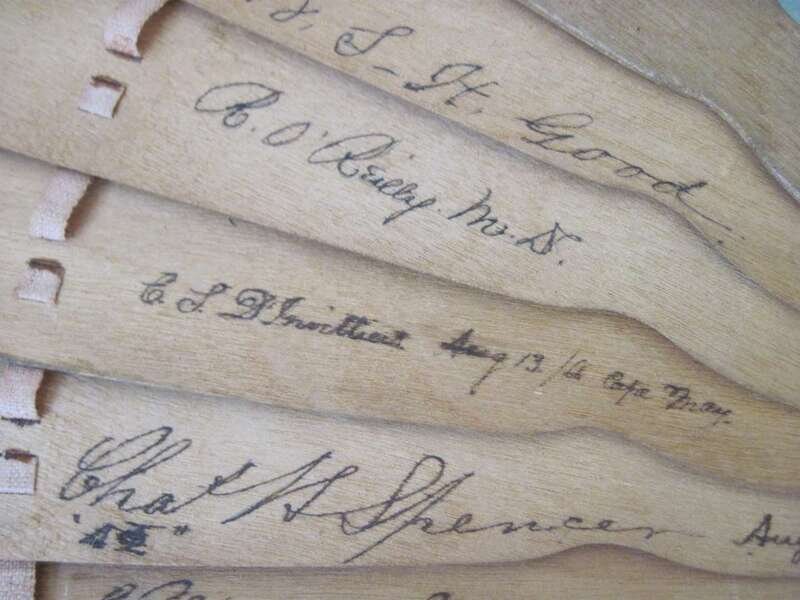 S. H. Good
R. O'Reilly. M. D.
C. S. Aug 13 Cape May.
Chas H Spencer Aug